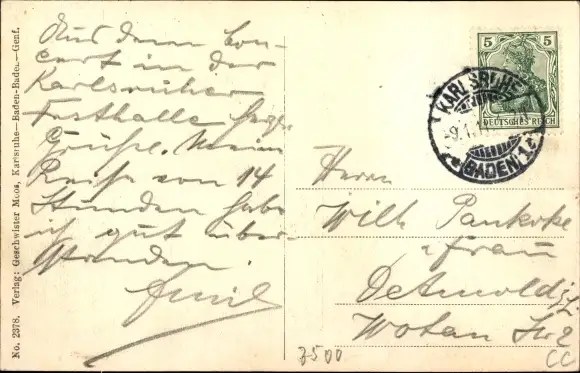 Aus dem Con-
cert in der
Karlsruher
Festhalle herzl.
Grüße. Meine
Reise von 14
Stunden habe
ich gut über-
standen.
Emil
No. 2378. Verlag: Geschwister Moos, Karlsruhe—Baden-Baden—Genf.
5 5
DEUTSCHES REICH
KARLSRUHE
BADEN
Herrn
Wilh Pankoke
u Frau
Detmold
Wotan
7500
CC